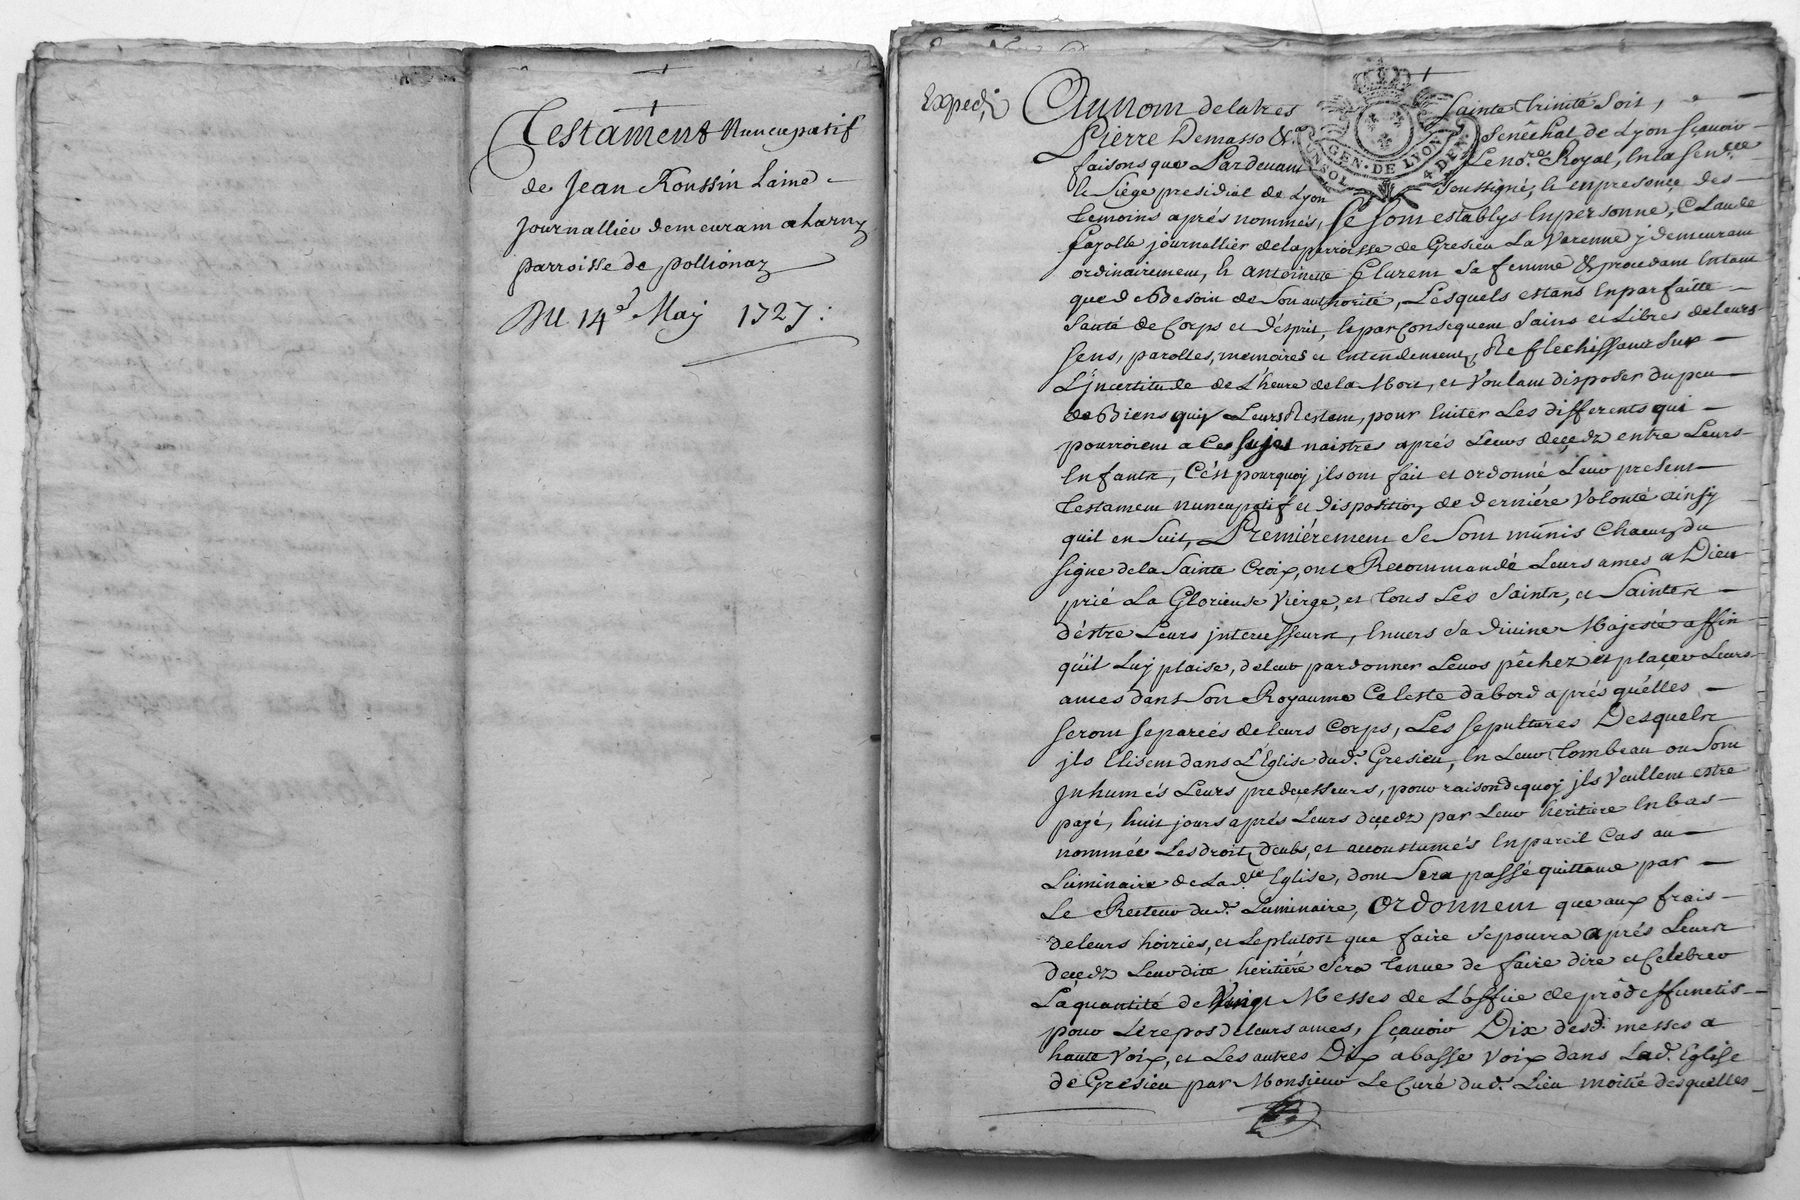 Testament Nuncupatif
de Jean Roussin Laine
Journallier demeurant a Larny
parroisse de pollionaz
Du 14e May 1727:
Expedié
Au nom de la tres Sainte Trinité Soit,
Pierre Demasso &a. Senêchal de Lyon Sçavoir
faisons que Pardevant Le nore. Royal, En la Senee.
le Siége presidial de Lyon soussigné, & en presence des
temoins aprés nommés, Se Sont establys En personne, Claude
fayolle journallier de la parroisse de Gresieu La Varenne y demeurant
ordinairement, & antoinette flurem Sa femme & procedant En tant
que de Besoin de Son authorité, Lesquels estans En parfaitte
Santé de Corps et d'Esprit, & par Consequent Sains et Libres de leurs
Sens, parolles, memoires et Entendement, Reflechissant Sur
L'jncertitude de L'heure de la Mort, et Voulant disposer du peu
de Biens quy Leurs Restent, pour Eviter Les differents qui
pourroient a Ces sujet naistres aprés Leurs decedz entre Leurs
Enfants, C'est pourquoy jls ont fait et ordonné Leur present
testament nuncupatif et disposition de derniére Volonté ainsy
quil en Suit, Premiérement Se Sont munis Chacun du
Signe de la Sainte Croix, ont Recommandé Leurs ames a Dieu
prié La Glorieuse Viérge, et tous Les Saints, et Saintes
d'éstre Leurs jntercesseurs, Envers Sa divine Majesté affin
qu'il Luy plaise, de leur pardonner Leurs pêchez et placer Leurs
ames dans Son Royaume Celeste d'abord aprés qu'elles
Seront Separeés de leurs Corps, Les Sepultures Desquels
jls Elisent dans L'Eglise dud. Gresieu, En Leur tombeau ou Sont
Jnhumés Leurs predecesseurs, pour raison de quoy jls Veullent estre
payé, huit jours aprés Leurs decedz par Leur héritiere En bas
nommée Les droits deubs, et accoustumés En pareil Cas au
Luminaire de Lad.te Eglise, dont Sera passé quittance par
Le Recteur dud. Luminaire, Ordonnent que aux frais
de leurs hoiries, et Le plutost que faire Se pourra aprés Leurs
decedz Leur dite héritiére Sera tenue de faire dire et Celebrer
La quantité de Vingt Messes de L'office de pro deffunctis
pour Le repos de leurs ames, Sçavoir Dix desd. messes a
haute Voix, et Les autres Dix a basse Voix dans Lad. Eglise
de Gresieu par Monsieur Le Curé dud. Lieu moitié desquelles
GEN. DE LYON
UN SOL 4 DEN.